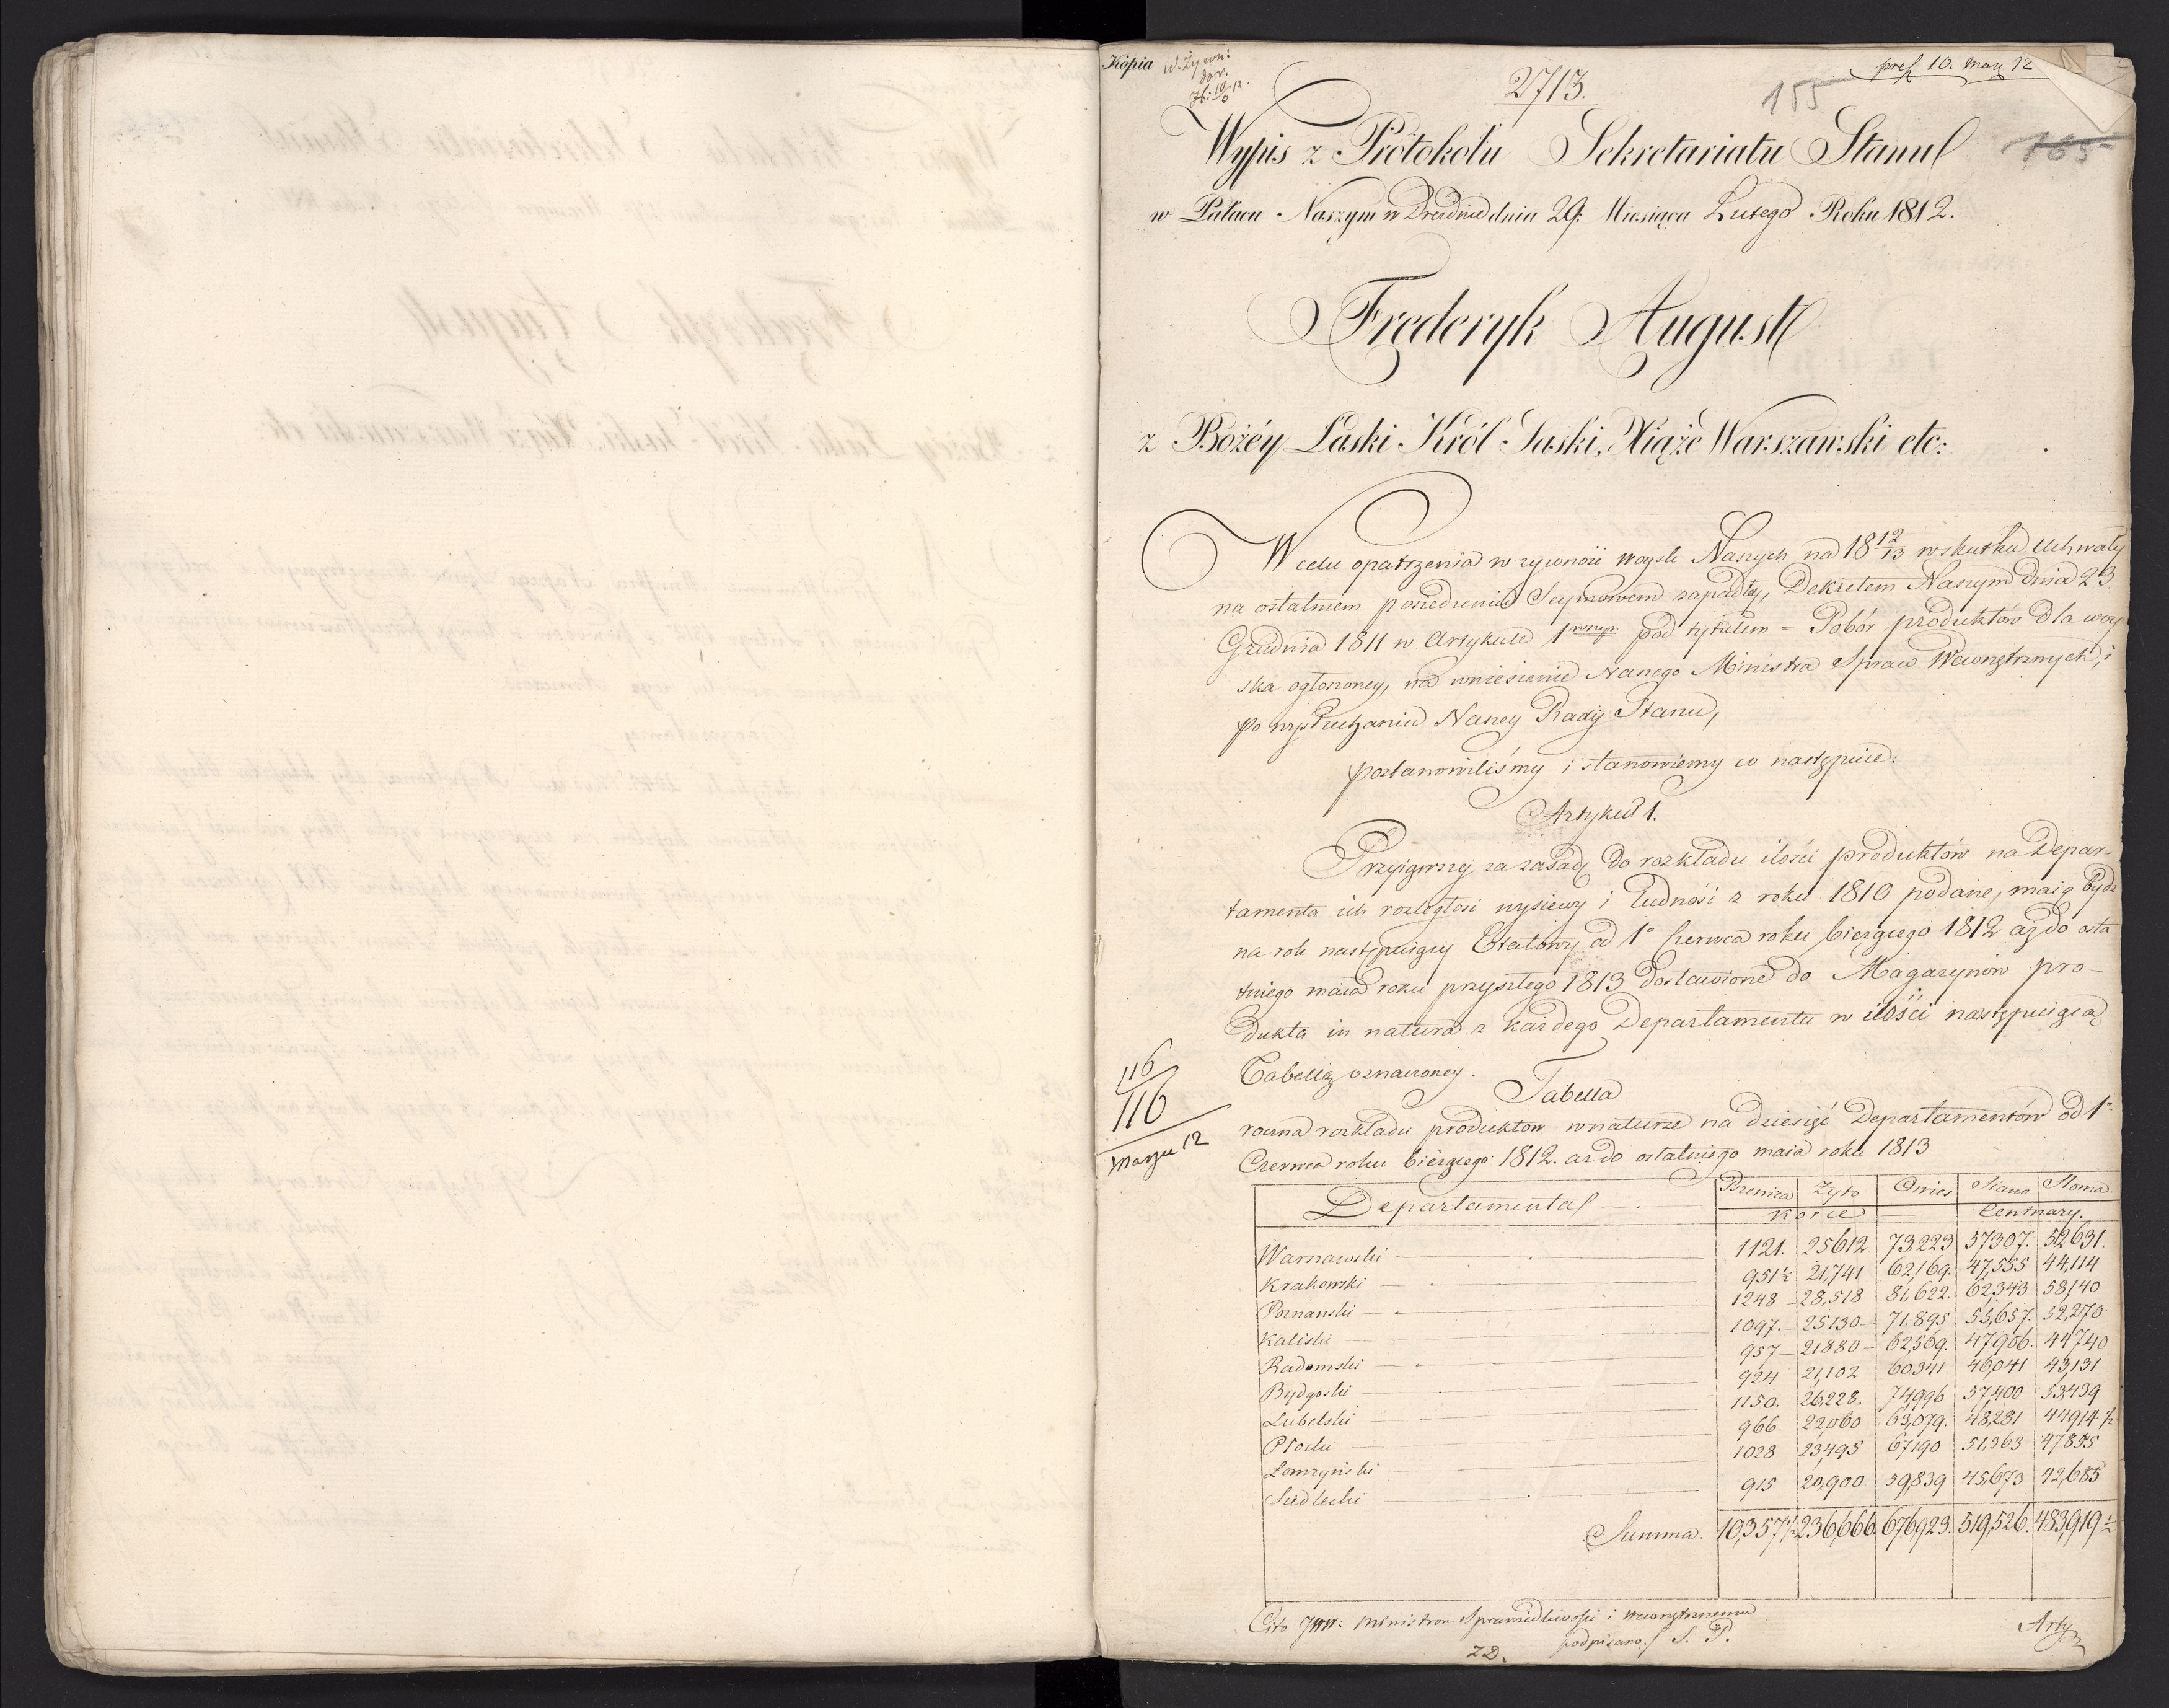 Kopia
W. Żywn:
dor.
pres. 10. Marz 12
2713.
155
165
Wypis z Protokołu Sekretariatu Stanu
w Pałacu Naszym w Dreźnie dnia 29. Miesiąca Lutego Roku 1812.
Fryderyk August
z Bożéy Łaski Król Saski, Xiąże Warszawski etc:
W celu opatrzenia w żywność woysk Naszych na 18 12/13 w skutku Uchwały
na ostatniem posiedzeniu Seymowem zapadłey, Dekretem Naszym dnia 23.
Grudnia 1811 w Artykule 1wszym pod tytułem = Pobór produktów dla woy
ska ogłoszoney, na wniesienie Naszego Ministra Spraw Wewnętrznych, i
po wysłuchaniu Naszey Rady Stanu,
postanowiliśmy i stanowiemy co następuie:
Artykuł 1.
Przyiąwszy za zasadę do rozkładu ilości produktów na Depar-
tamenta ich rozległości wysiewy i ludność z roku 1810 podane, maią bydź
na rok następuiący Etatowy od 1° Czerwca roku bieżącego 1812 aż do osta
tniego maia roku przyszłego 1813 dostawione do Magazynów pro-
dukta in natura z każdego Departamentu w ilości następuiącą
Tabellą oznaczoney.
116
116
Marzu 12
Tabella
roczna rozkładu produktow w naturze na dziesięć Departamentów od 1°
Czerwca roku bieżącego 1812. aż do ostatniego maia roku 1813
Departamenta Pszenica Żyto Owies Siano Słoma
Korce Centnary.
Warszawski 1121. 25612 73223 57307. 52631.
Krakowski 951½ 21,741 62,169. 47,555 44,114
Poznanski 1248 28,518 81,622. 62,343 58,140
Kaliski 1097. 25130 71.895 55,657. 52,270
Radomski 957 21880 62,569. 47,906. 44740
Bydgoski 924 21,102 60341 46,041 43,131
Lubelski 1150. 26,228. 74,996 57,400 53,439
Płocki 966 22060 63,079. 48,281 44914.½
Łomżyński 1028 23,495 67190 51,363 47,855
Siedlecki 915 20,900 59,839 45,673 42,685
Summa. 10,357½ 236,666. 676,923. 519,526. 483,919½
Cito JWW: Ministrom Sprawiedliwości i Wewnętrznemu
podpisano/ S. P.
ZD.
Arty